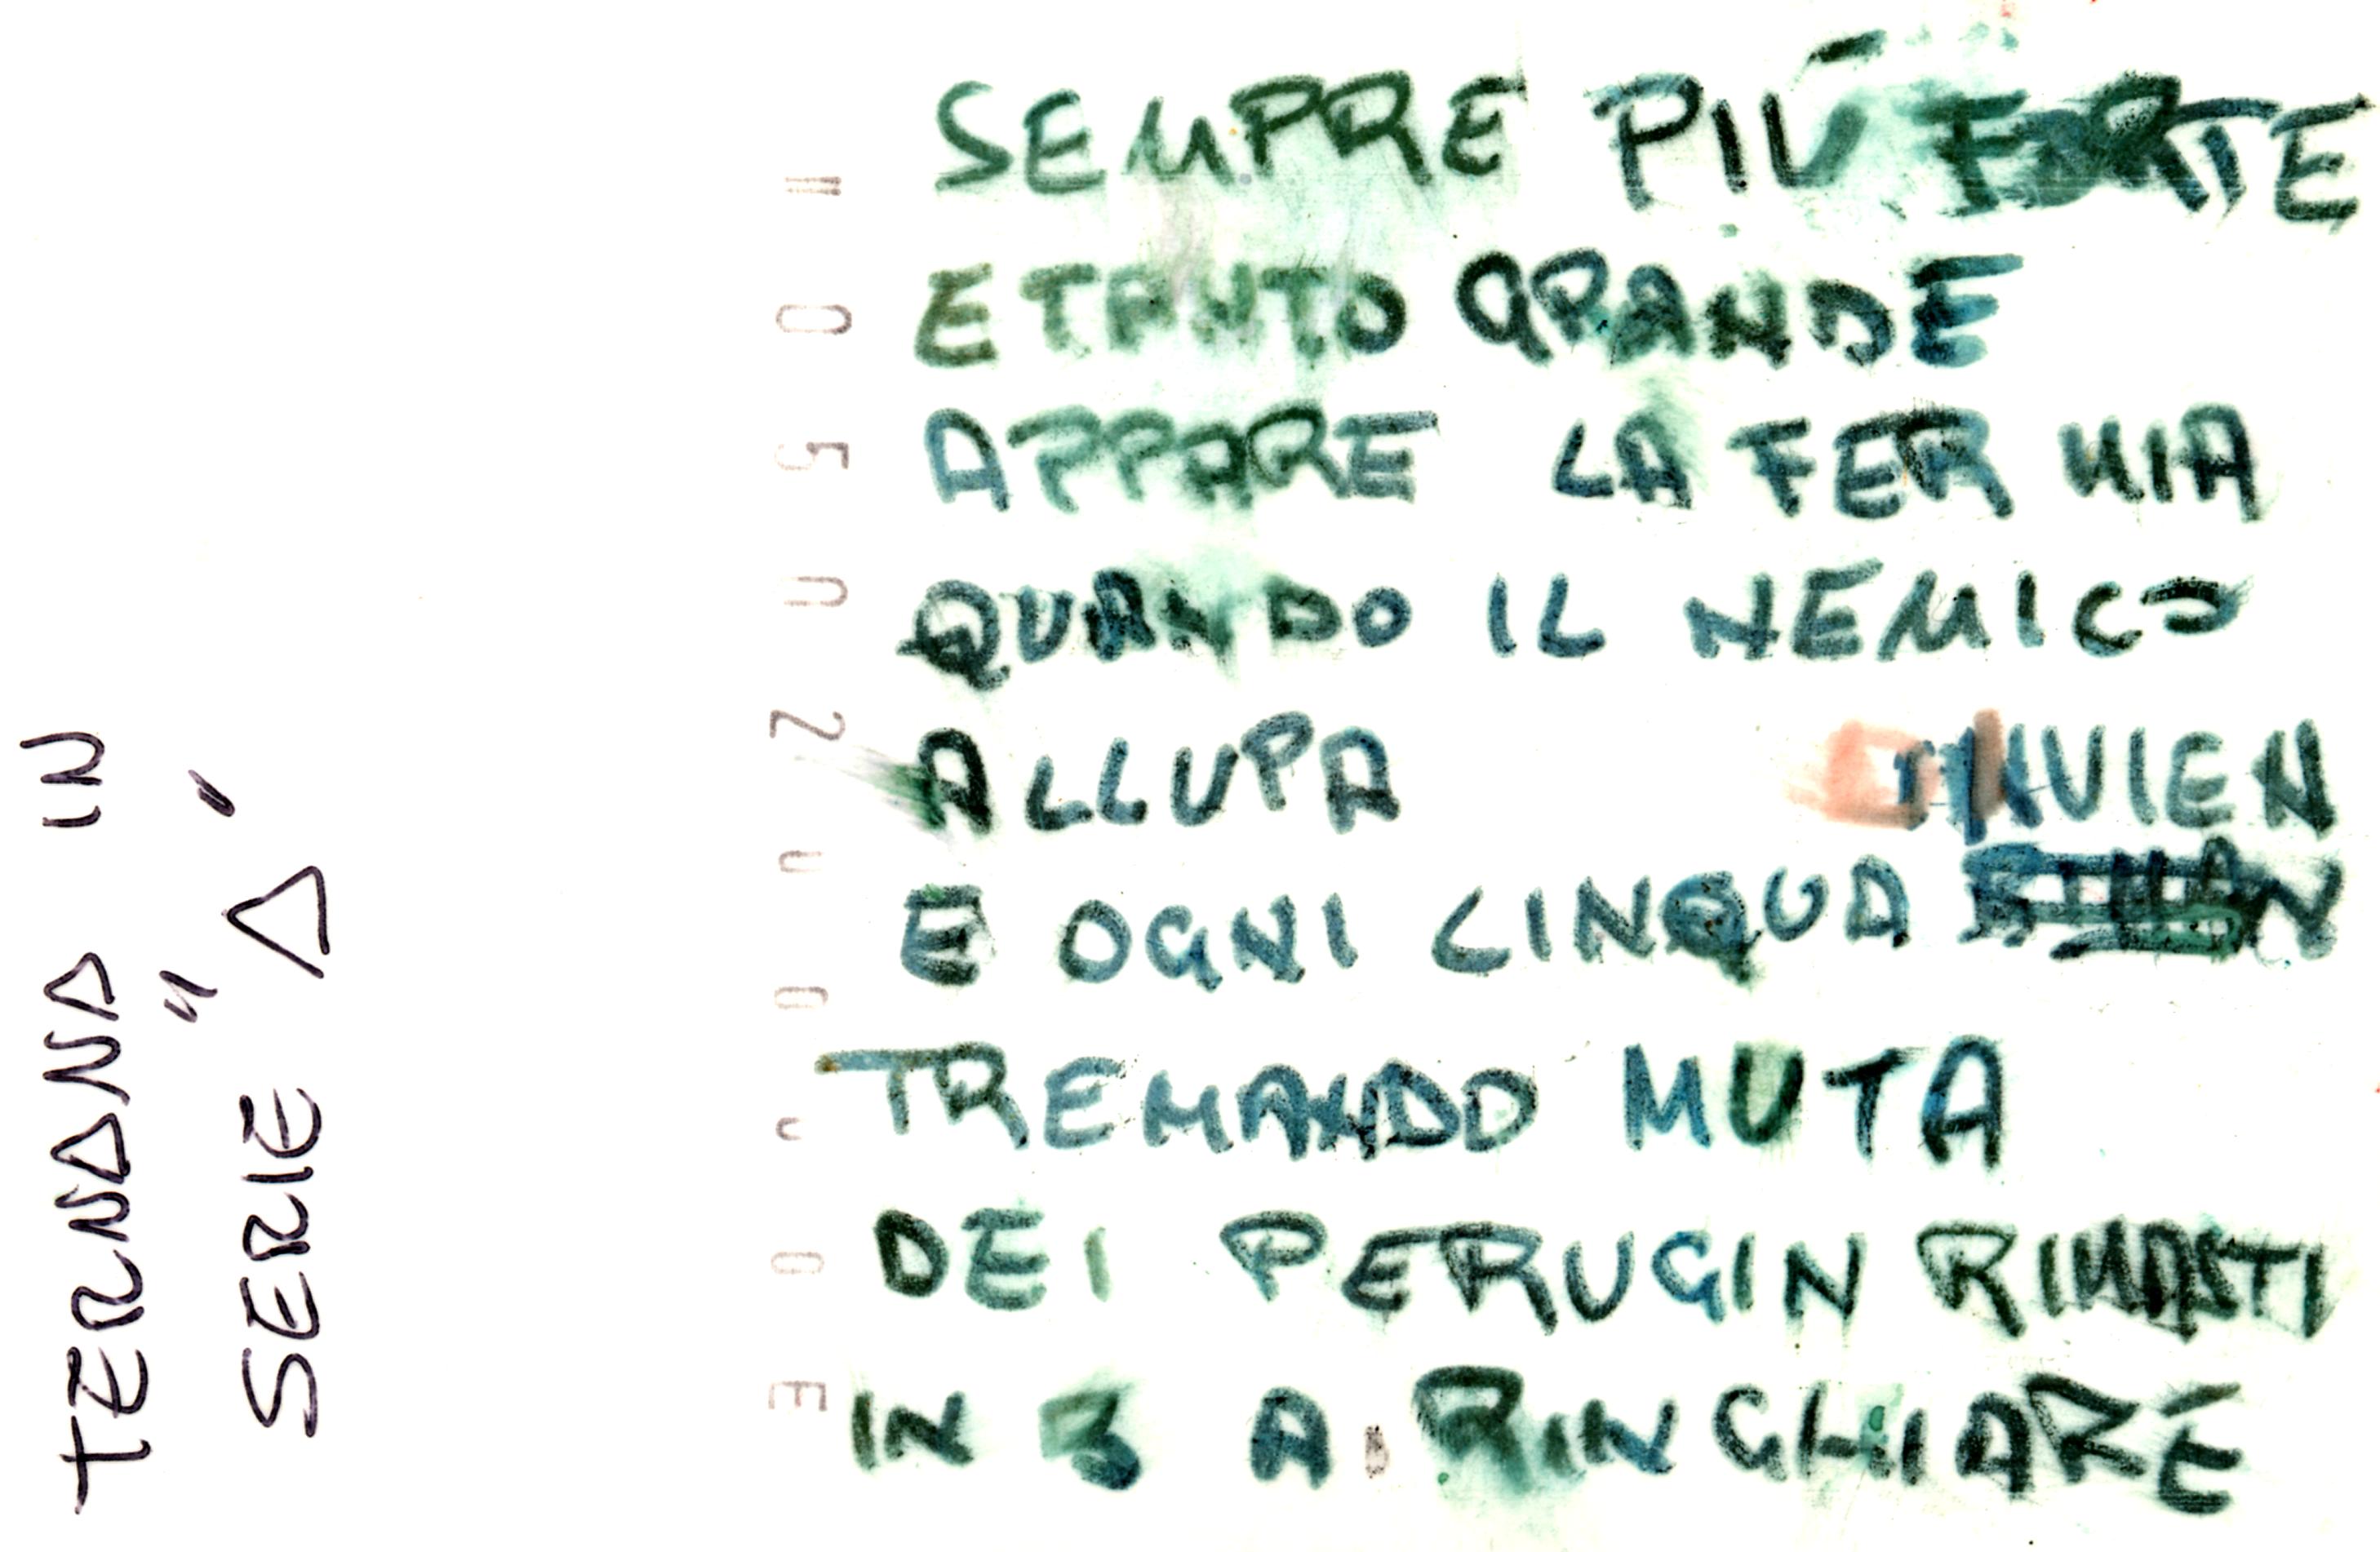 TERNANA IN
SERIE "A"
SEMPRE PIÙ FORTE
E TANTO GRANDE
APPARE LA FER MIA
QUANDO IL NEMICO
ALLUPA
E OGNI LINQUA
TREMANDO MUTA
DEI PERUGIN RIMASTI
IN B A RINGHIARE